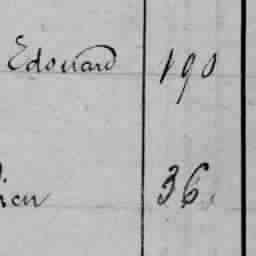 Edouard 190
ien 36